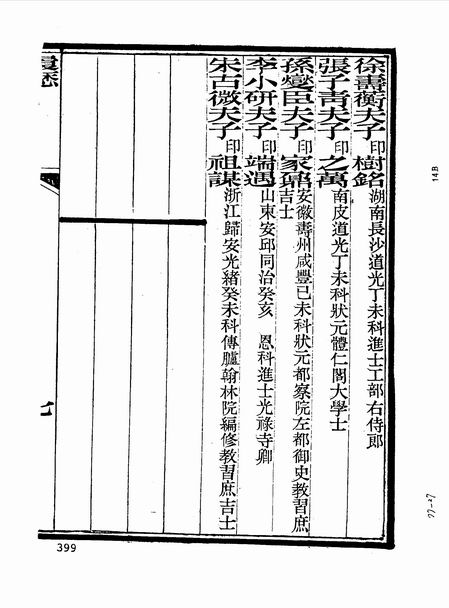 徐壽蘅夫子印樹銘湖南長沙道光丁未科進士工部右侍郎
張子青夫子印之萬南皮道光丁未科狀元體仁閣大學士
孫燮臣夫子印家鼐安徽壽州咸豐己未科狀元都察院左都御史教習庶
吉士
李小研夫子印端遇山東安邱同治癸亥 恩科進士光祿寺卿
朱古微夫子印祖謀浙江歸安光緒癸未科傳臚翰林院編修教習庶吉士
履歷
七
399
14B
27-27